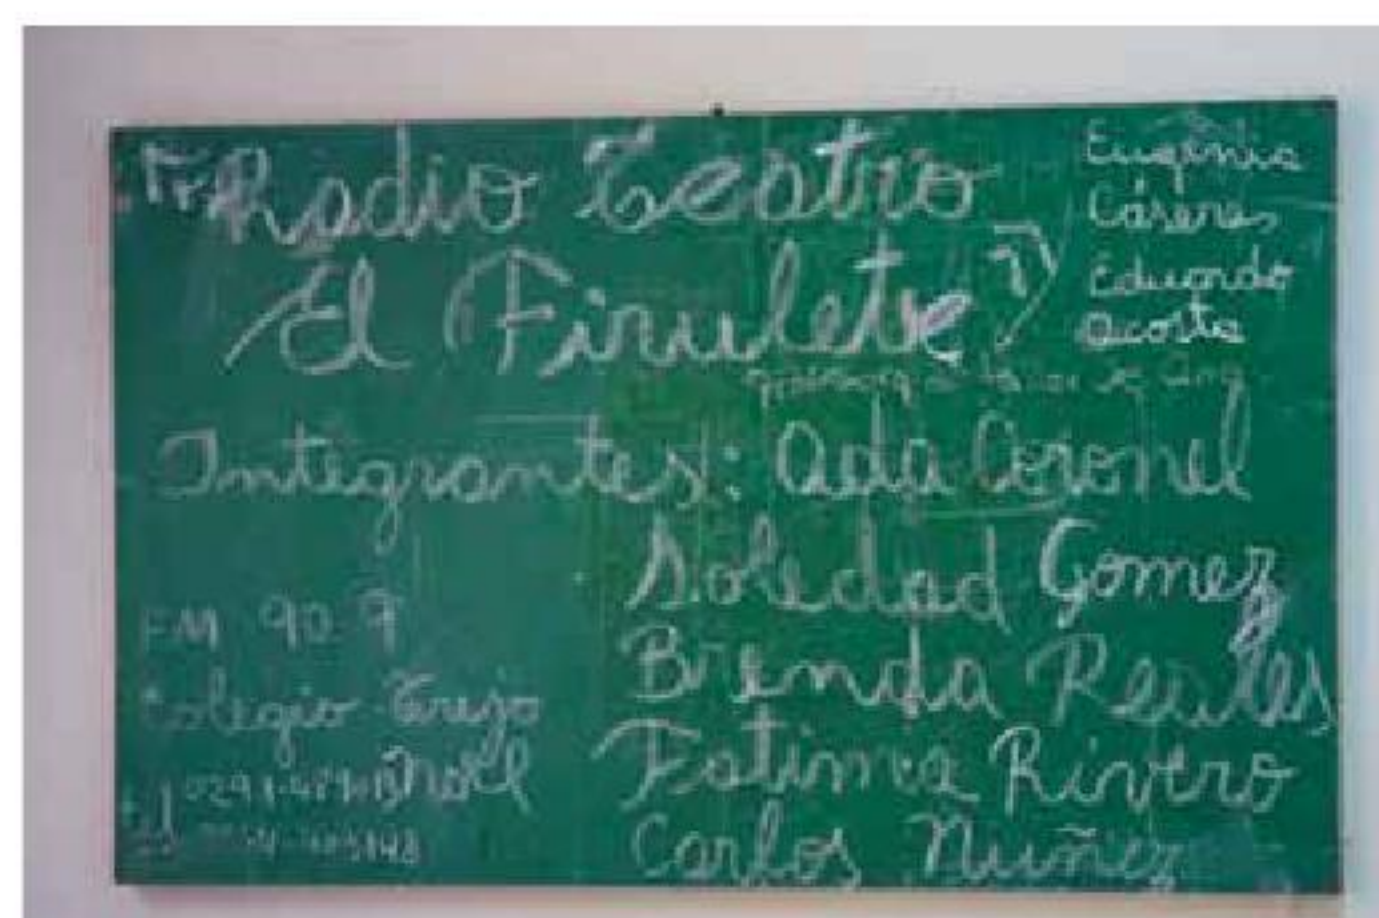 Radio Teatro
El Firulete
Eugenia
Cáseres
Eduardo
Acosta
Integrantes: Ada Coronel
Soledad Gomez
Brenda Reales
Fatima Rivero
Carlos Nuñez
FM 90.9
Colegio Trejo